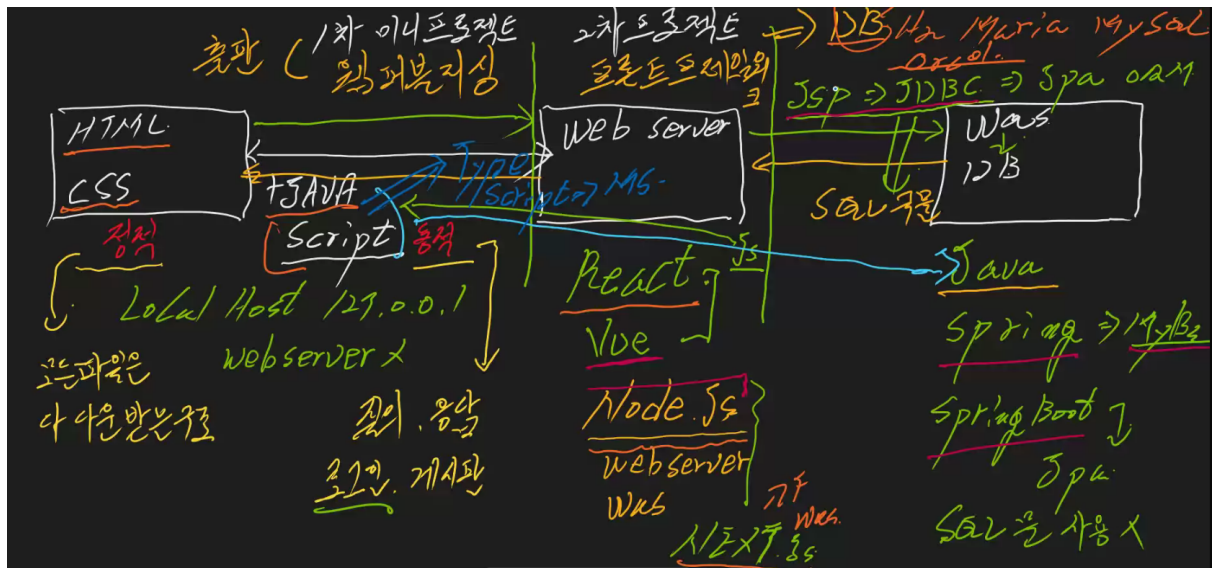 출판 ( 1차 미니프로젝트
웹퍼블리싱
2차 프로젝트
프론트프레임워크
⇒ DB H2 Maria MySQL
Jsp ⇒ JDBC ⇒ Jpa ORM
HTML
CSS
정적
+JAVA
Script
동적
Type
Script → MS
Web Server
Was
↓
DB
SQL 구문
Js
Local Host 127.0.0.1
webserver X
모든파일은
다 다운받는구조
질의, 응답
로그인, 게시판
React
Vue
Node.Js
webserver
Was
Was
Java
Spring ⇒
SpringBoot
Jpa
SQL문 사용 X